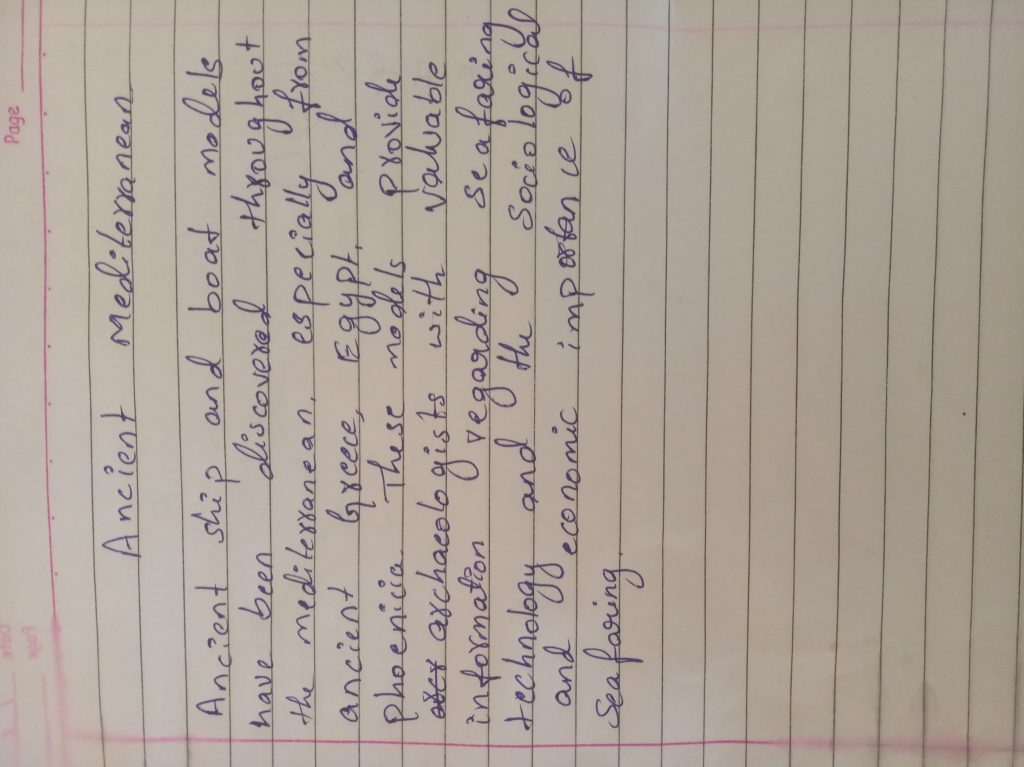 Page
Ancient Mediterranean
Ancient ship and boat models
have been discovered throughout
the mediterranean, especially from
ancient Greece, Egypt, and
phoenicia. These models provide
archaeologists with valuable
information regarding seafaring
technology and the sociological
and economic importance of
Seafaring.